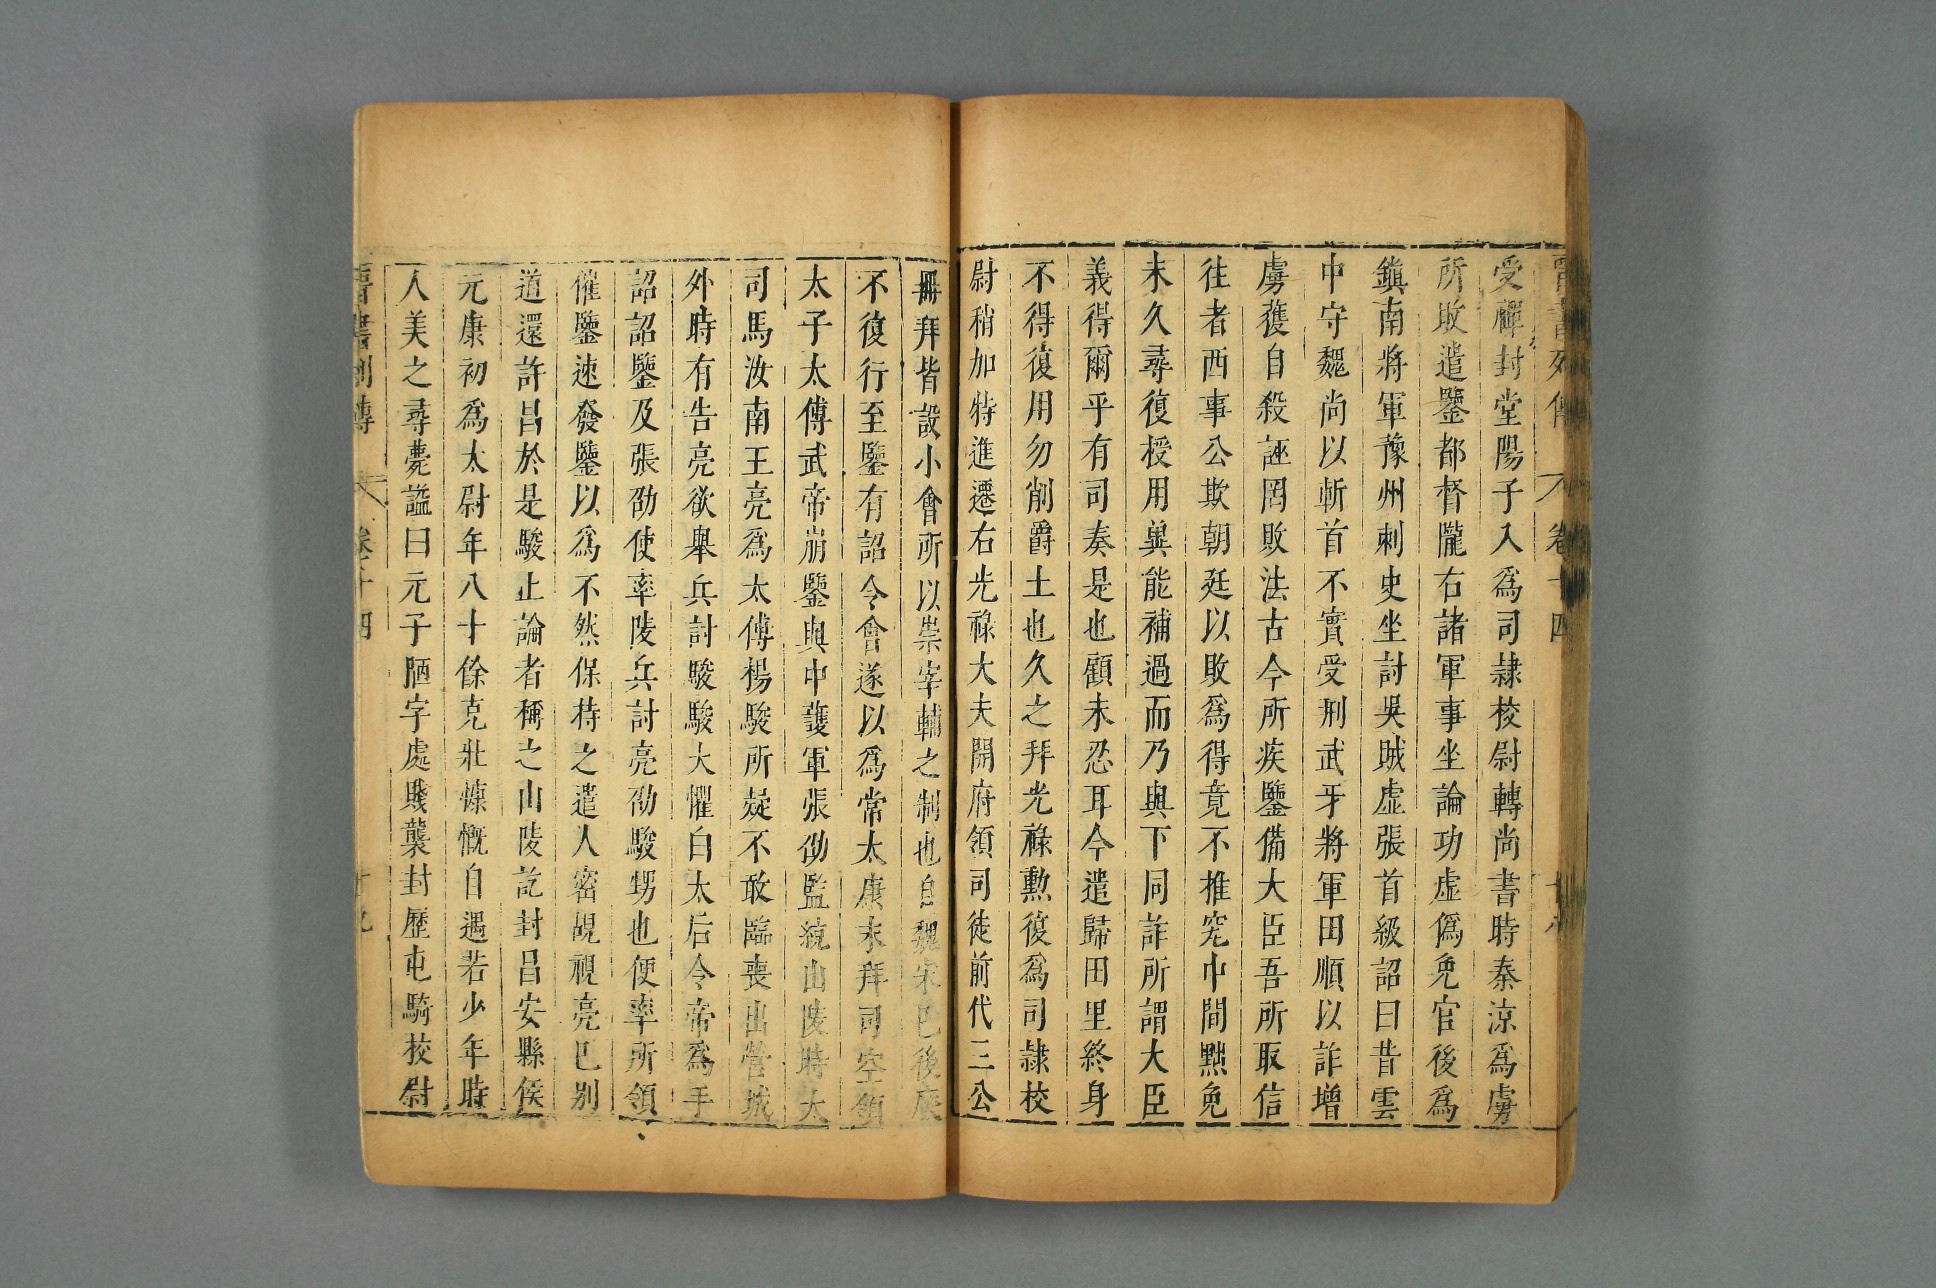 晉書列傳 卷十四
受禪封堂陽子入為司隸校尉轉尚書時秦涼為虜
所敗遣鑒都督隴右諸軍事坐論功虛偽免官後為
鎮南將軍豫州刺史坐討吳賊虛張首級詔曰昔雲
中守魏尚以斬首不實受刑武牙將軍田順以詐增
虜獲自殺誣罔敗法古今所疾鑒備大臣吾所取信
往者西事公欺朝廷以敗為得竟不推究中間黜免
未久尋復授用冀能補過而乃與下同詐所謂大臣
義得爾乎有司奏是也顧未忍耳今遣歸田里終身
不得復用勿削爵土也久之拜光祿勲復為司隸校
尉稍加特進遷右光祿大夫開府領司徒前代三公
冊拜皆設小會所以崇宰輔之制也自魏末已後廢
不復行至鑒有詔令會遂以為常太康末拜司空領
太子太傅武帝崩鑒與中護軍張劭監統山陵時大
司馬汝南王亮為太傅楊駿所疑不敢臨喪出營城
外時有告亮欲舉兵討駿駿大懼白太后令帝為手
詔詔鑒及張劭使率陵兵討亮劭駿甥也便率所領
催鑒速發鑒以為不然保持之遣人密覘視亮已别
道還許昌於是駿止論者稱之山陵訖封昌安縣侯
元康初為太尉年八十餘克壯慷慨自遇若少年時
人美之尋薨謚曰元子陋字處賤襲封歷屯騎校尉
晉書列傳 卷十四 廿九